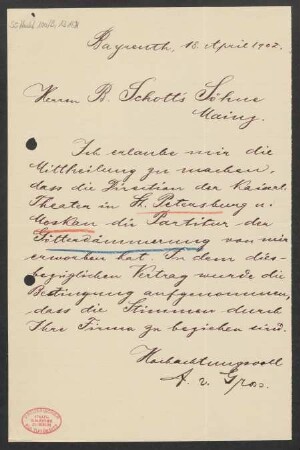 Bayreuth, 18. April 1902.
Herren B. Schott's Söhne
Mainz.
Ich erlaube mir die
Mittheilung zu machen,
dass die Direction der Kaiserl.
Theater in St. Petersburg u.
Moskau die Partitur der
Götterdämmerung von mir
erworben hat. In dem dies-
bezüglichen Vertrag wurde die
Bedingung aufgenommen,
dass die Stimmen durch
Ihre Firma zu beziehen sind.
Hochachtungsvoll
A. v. Gross.